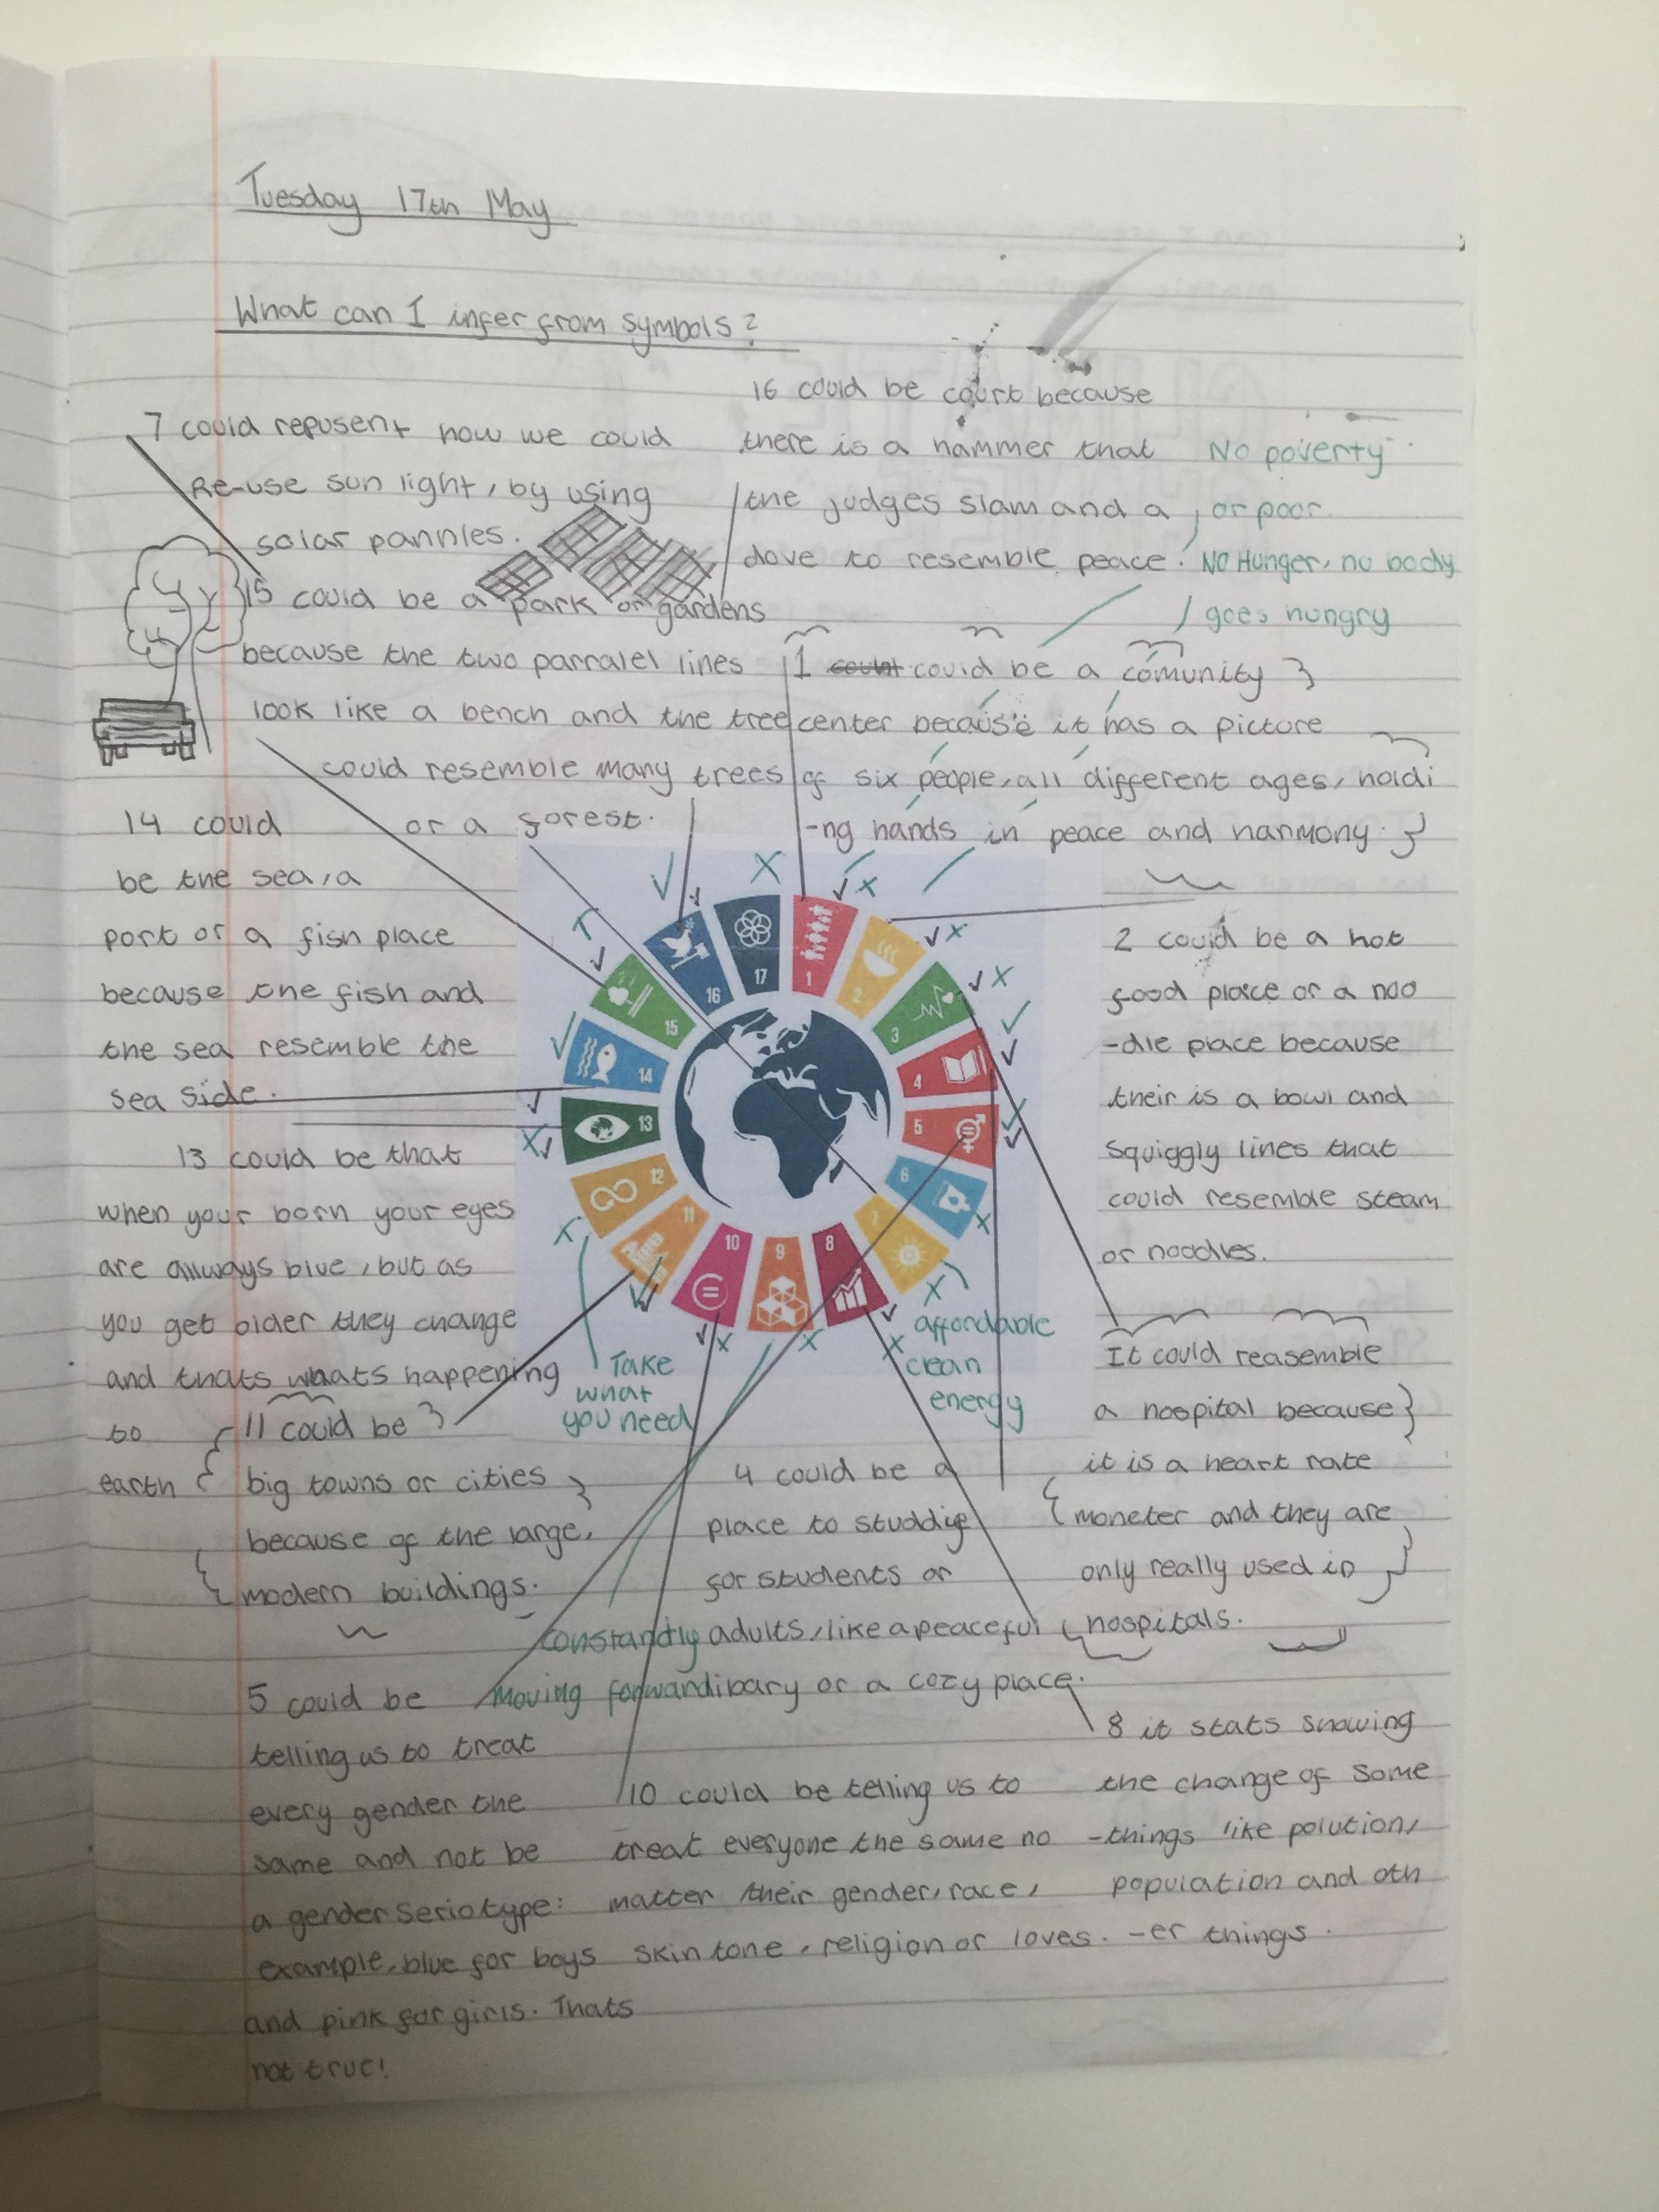 Tuesday 17th May
What can I infer from symbols?
7 could repusent how we could
Re-use sun light, by using
solar pannles.
16 could be court because
there is a hammer that
the judges slam and a
dove to resemble peace.
No poverty
or poor
No Hunger, no body
goes hungry
15 could be a park or gardens
because the two parralel lines
look like a bench and the tree
could resemble many trees
or a forest.
1 could be a comunity
center because it has a picture
of six people, all different ages, holdi
-ng hands in peace and harmony.
14 could
be the sea, a
port or a fish place
because the fish and
the sea resemble the
sea side.
2 could be a hot
food place or a noo
-dle place because
their is a bowl and
squiggly lines that
could resemble steam
or noodles.
13 could be that
when your born your eyes
are allways blue, but as
you get older they change
and thats whats happening
to
earth
1
2
3
4
5
6
7
8
9
10
11
12
13
14
15
16
17
Take
what
you need
affordable
clean
energy
It could reasemble
a hospital because
it is a heart rate
moneter and they are
only really used in
hospitals.
11 could be
big towns or cities
because of the large,
modern buildings.
4 could be a
place to studdie
for students or
adults, like a peaceful
libary or a cozy place.
Constantly
Moving forward
5 could be
telling us to treat
every gender the
same and not be
a gender seriotype:
example, blue for boys
and pink for girls. Thats
not true!
10 could be telling us to
treat everyone the same no
matter their gender, race,
skin tone, religion or loves.
8 it stats showing
the change of some
-things like polution,
population and oth
-er things.